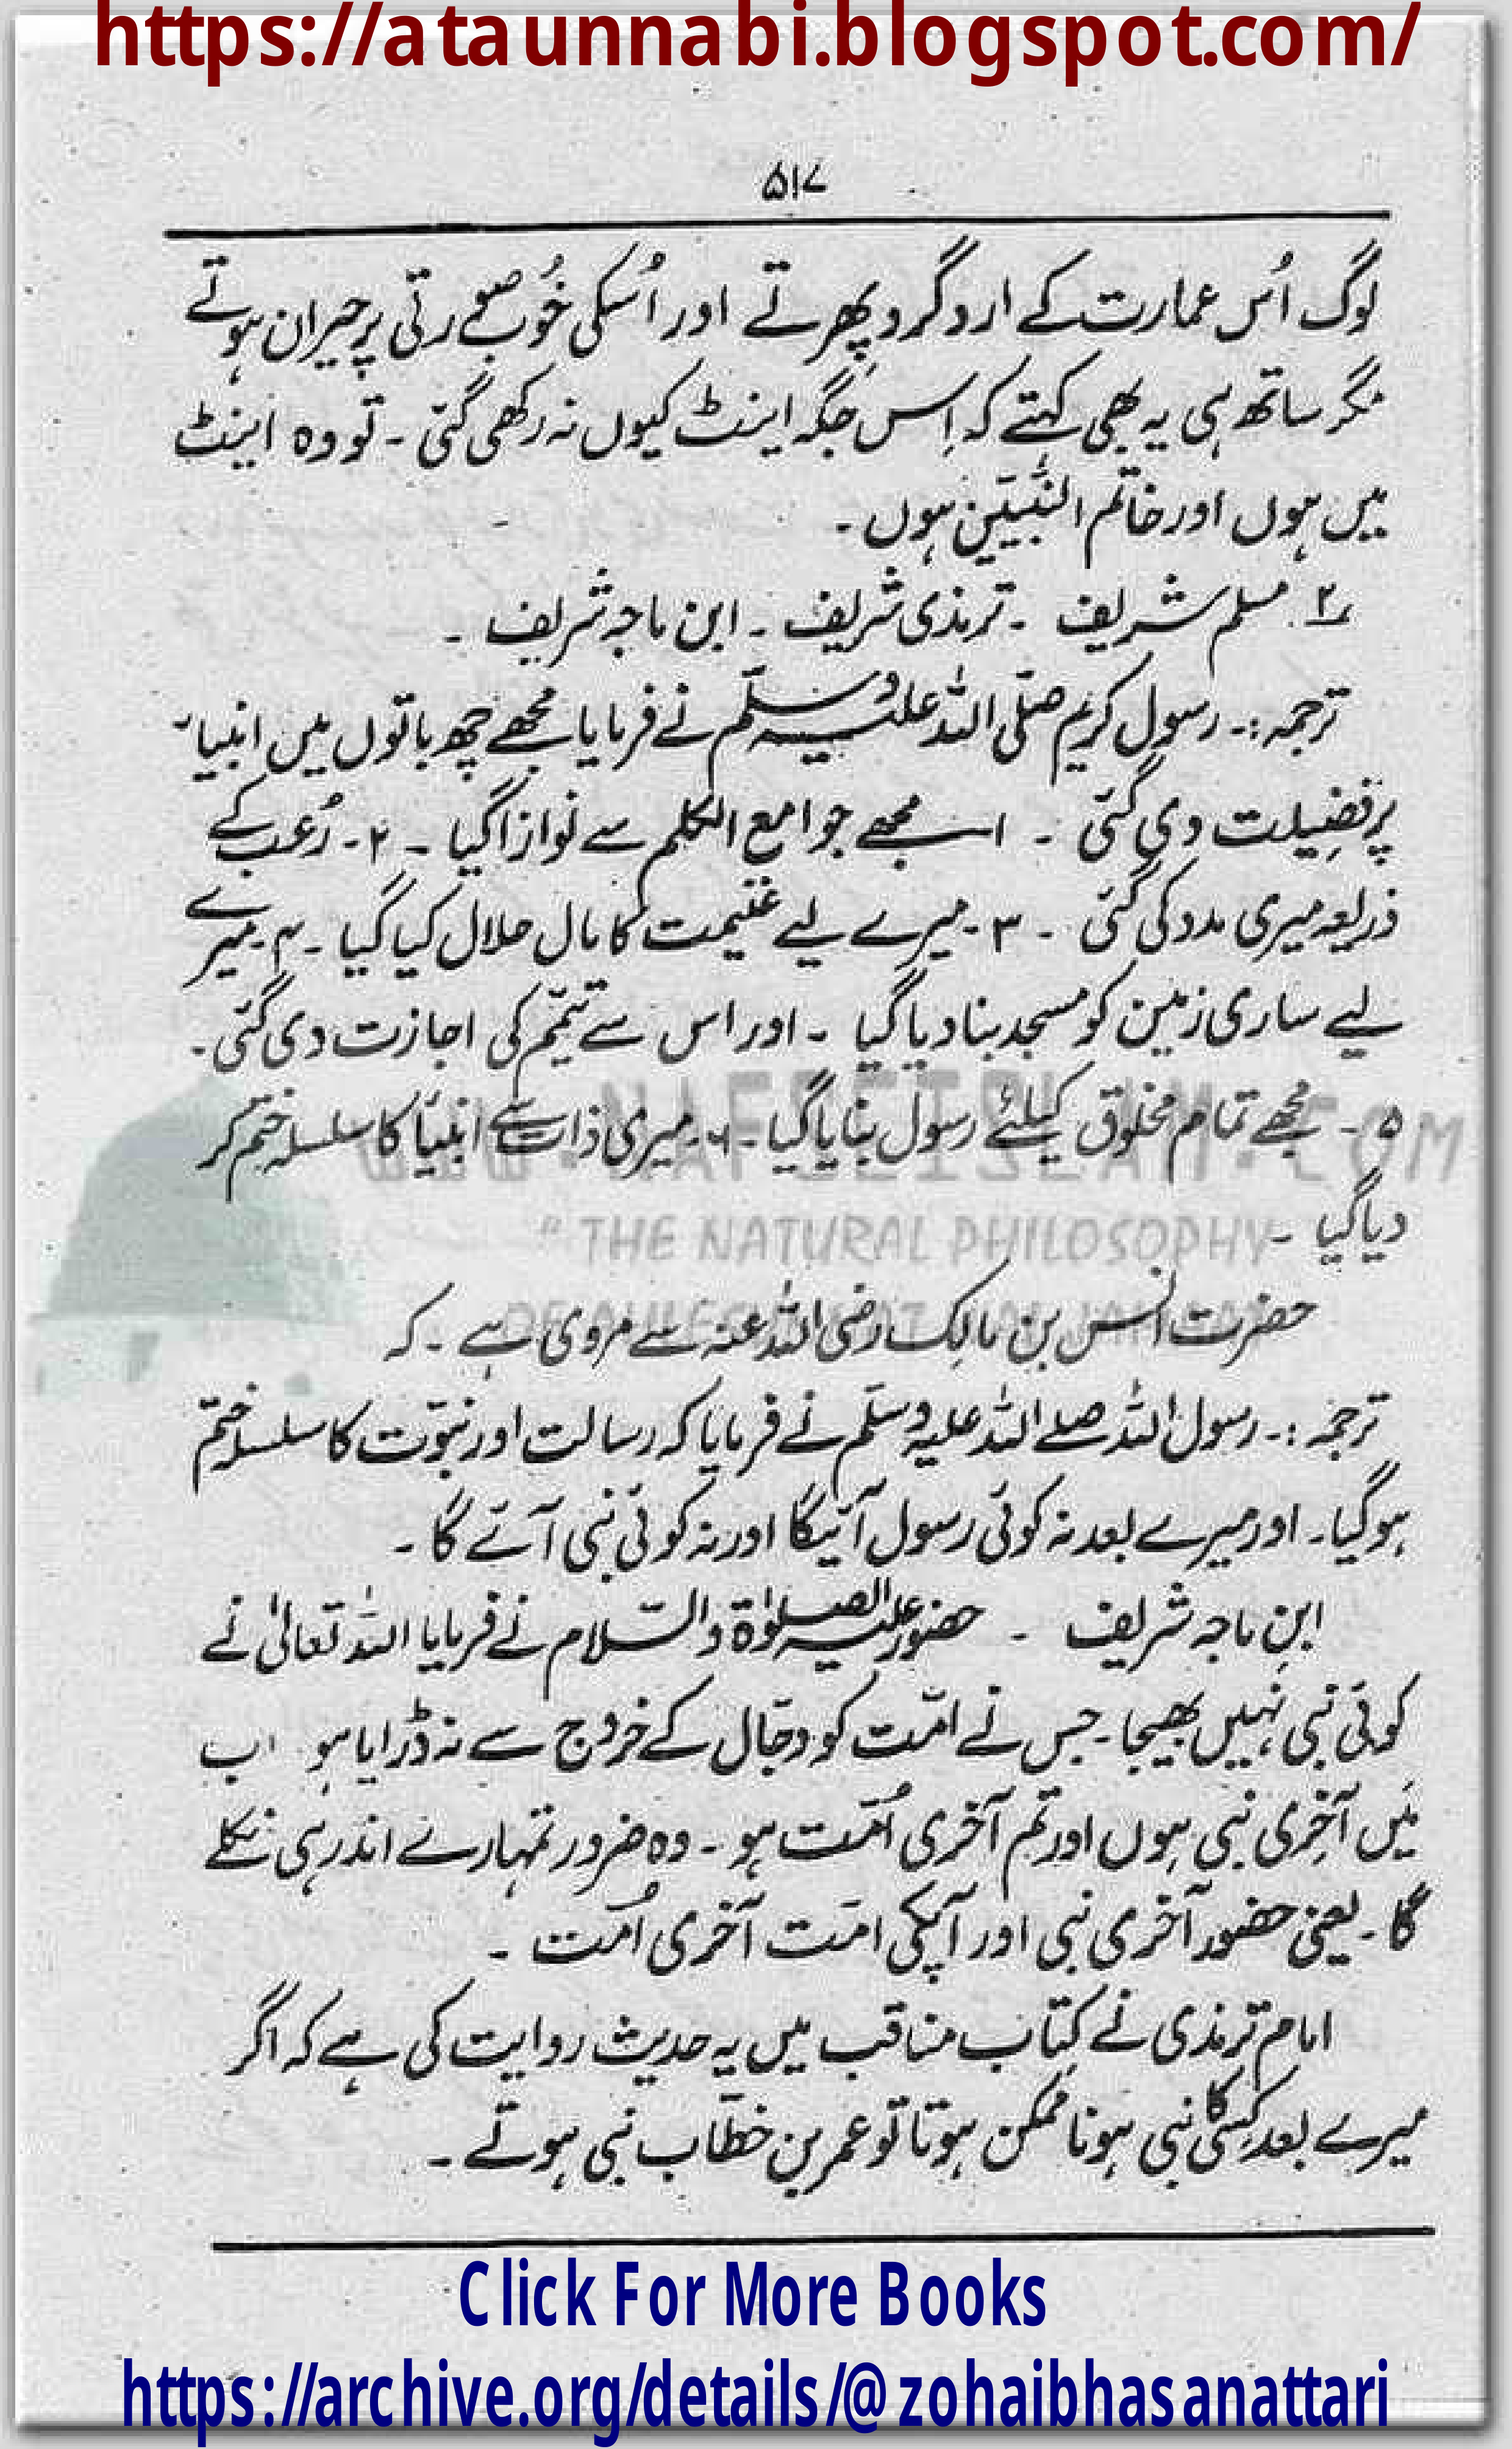 https://ataunnabi.blogspot.com/
۵۱۷
لوگ اُس عمارت کے ارد گرد پھرتے اور اُسکی خُوبصورتی پر حیران ہوتے
مگر ساتھ ہی یہ بھی کہتے کہ اِس جگہ اینٹ کیوں نہ رکھی گئی ۔ تو وہ اینٹ
میں ہوں اور خاتم النَّبیّین ہوں ۔
۲؎ مسلم شریف ۔ ترمذی شریف ۔ ابن ماجہ شریف ۔
ترجمہ :۔ رسول کریم صلّی اللہ علیہ وسلّم نے فرمایا مجھے چھ باتوں میں انبیاء
پر فضیلت دی گئی ۔ ۱۔ مجھے جوامع الکلم سے نوازا گیا ۔ ۲۔ رُعب کے
ذریعہ میری مدد کی گئی ۔ ۳۔ میرے لیے غنیمت کا مال حلال کیا گیا ۔ ۴۔ میرے
لیے ساری زمین کو مسجد بنا دیا گیا ۔ اور اس سے تیمّم کی اجازت دی گئی ۔
۵ ۔ مجھے تمام مخلوق کیلئے رسول بنایا گیا ۔ ۶۔ میری ذات سے انبیأ کا سلسلہ ختم کر
WWW.NAFSEISLAM.COM
دیا گیا ۔
" THE NATURAL PHILOSOPHY
حضرت انس بن مالک رضی اللہ عنہ سے مروی ہے ۔ کہ
ترجمہ :۔ رسول اللہ صلے اللہ علیہ وسلّم نے فرمایا کہ رسالت اور نبوّت کا سلسلہ ختم
ہو گیا ۔ اور میرے بعد نہ کوئی رسول آئیگا اور نہ کوئی نبی آئے گا ۔
ابنِ ماجہ شریف ۔ حضور علیہ الصلوٰۃ والسّلام نے فرمایا اللہ تعالیٰ نے
کوئی نبی نہیں بھیجا ۔ جس نے امّت کو دجّال کے خروج سے نہ ڈرایا ہو اب
میں آخری نبی ہوں اور تم آخری اُمّت ہو ۔ وہ ضرور تمہارے اندر ہی نکلے
گا ۔ یعنی حضور آخری نبی اور آپکی امت آخری اُمت ۔
امام ترمذی نے کتاب مناقب میں یہ حدیث روایت کی ہے کہ اگر
میرے بعد کسی کا نبی ہونا ممکن ہوتا تو عمر بن خطّاب نبی ہوتے ۔
Click For More Books
https://archive.org/details/@zohaibhasanattari